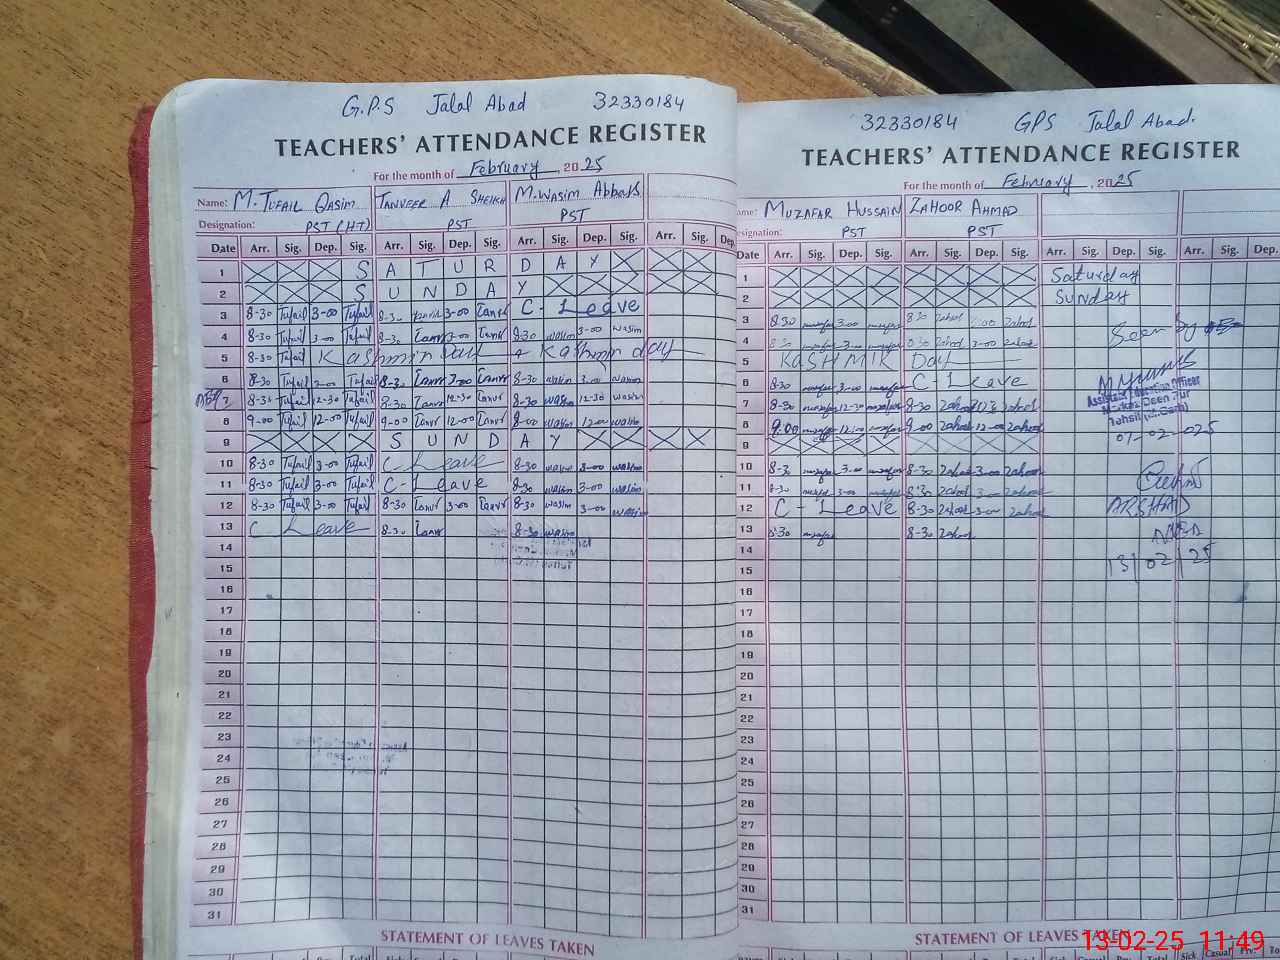 G.P.S Jalal Abad 32330184
TEACHERS' ATTENDANCE REGISTER
For the month of February, 2025
Name: M. TUFAIL QASIM TANVEER A SHEIKH M. WASIM Abbas
Designation: PST (HT) PST PST
Date Arr. Sig. Dep. Sig. Arr. Sig. Dep. Sig. Arr. Sig. Dep. Sig. Arr. Sig. Dep.
1 S A T U R D A Y
2 S U N D A Y
3 8-30 Tufail 3-00 Tufail 8-30 Tanvr 3-00 Tanvr C- Leave
4 8-30 Tufail 3-00 Tufail 8-30 Tanvr 3-00 Tanvr 8-30 wasim 3-00 wasim
5 8-30 Tufail Kashmir Day Kashmir day
6 8-30 Tufail 3-00 Tufail 8-30 Tanvr 3-00 Tanvr 8-30 wasim 3-00 wasim
7 8-30 Tufail 12-30 Tufail 8-30 Tanvr 12-30 Tanvr 8-30 wasim 12-30 wasim
8 9-00 Tufail 12-00 Tufail 9-00 Tanvr 12-00 Tanvr 8-00 wasim 12-00 wasim
9 S U N D A Y
10 8-30 Tufail 3-00 Tufail C- Leave 8-30 wasim 3-00 wasim
11 8-30 Tufail 3-00 Tufail C- Leave 8-30 wasim 3-00 wasim
12 8-30 Tufail 3-00 Tufail 8-30 Tanvr 3-00 Tanvr 8-30 wasim 3-00 wasim
13 C Leave 8-30 Tanvr 8-30 wasim
14
15
16
17
18
19
20
21
22
23
24
25
26
27
28
29
30
31
STATEMENT OF LEAVES TAKEN
32330184 GPS Jalal Abad.
TEACHERS' ATTENDANCE REGISTER
For the month of February, 2025
ame: MUZAFAR HUSSAIN ZAHOOR AHMAD
esignation: PST PST
Date Arr. Sig. Dep. Sig. Arr. Sig. Dep. Sig. Arr. Sig. Dep. Sig. Arr. Sig. Dep.
1 Saturday
2 Sunday
3 8-30 muzafar 3-00 muzafar 8-30 zahoor 3-00 zahoor
4 8-30 muzafar 3-00 muzafar 8-30 zahoor 3-00 zahoor Seen by
5 KASHMIR Day
6 8-30 muzafar 3-00 muzafar C- Leave
Assistant Education Officer
7 8-30 muzafar 12-30 muzafar 8-30 zahoor zahoor
Markaz Deen Pur
8 9.00 muzafar 12-00 muzafar 9-00 zahoor 12-00 zahoor
07-02-025
9
10 8-30 muzafar 3-00 muzafar 8-30 zahoor 3-00 zahoor
11 8-30 muzafar 3-00 muzafar 8-30 zahoor 3-00 zahoor
12 C- Leave 8-30 zahoor 3-00 zahoor ARSHAD
13 8-30 muzafar 8-30 zahoor
14
13/02/25
15
16
17
18
19
20
21
22
23
24
25
26
27
28
29
30
31
STATEMENT OF LEAVES TAKEN
13-02-25 11:49
Sick Casual Prv. Total